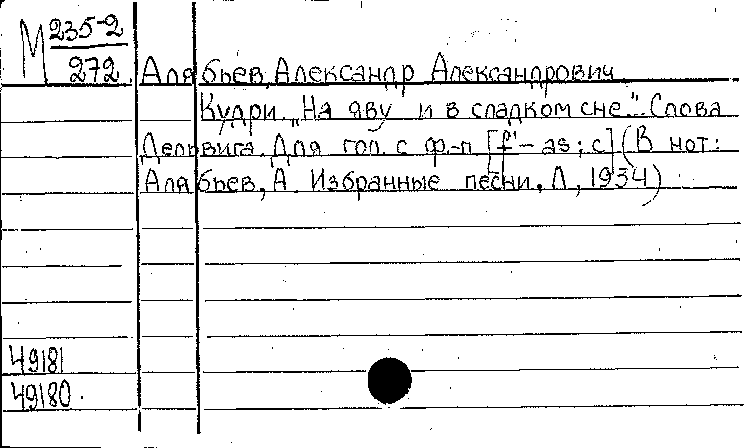 М 235-2
272
Алябьев, Александр Александрович
Кудри. "На яву и в сладком сне"... Слова
Дельвига. Для гол. с ф.-п. [f'-as; c] (В нот:
Алябьев, А. Избранные песни, Л, 1934)
49181
49180.